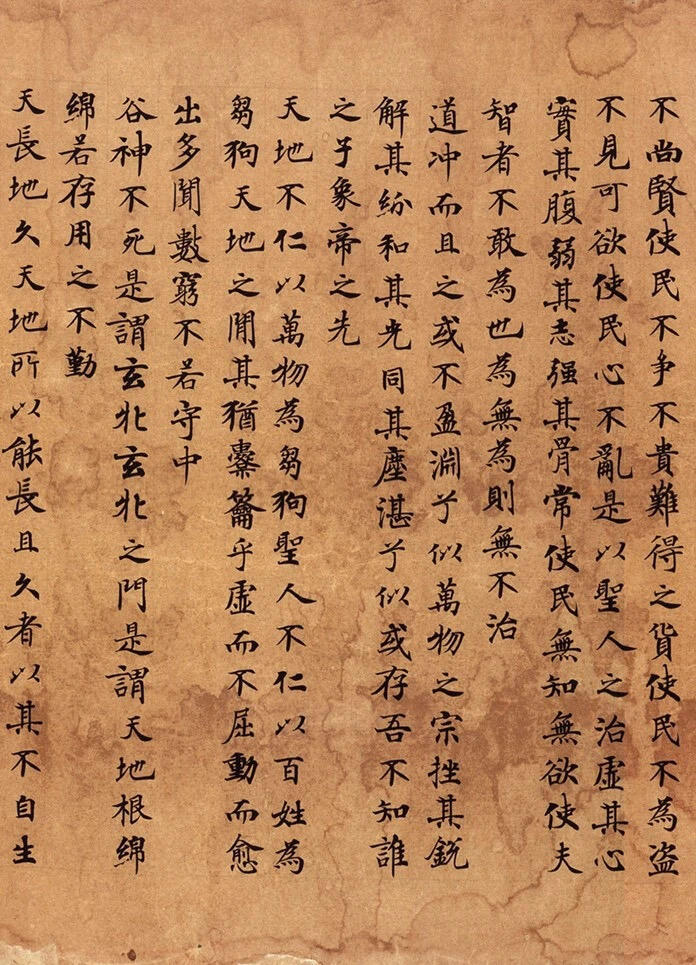 不尚賢使民不争不貴難得之貨使民不為盗
不見可欲使民心不亂是以聖人之治虚其心
實其腹弱其志强其骨常使民無知無欲使夫
智者不敢為也為無為則無不治
道冲而且之或不盈淵兮似萬物之宗挫其銳
解其紛和其光同其塵湛兮似或存吾不知誰
之子象帝之先
天地不仁以萬物為芻狗聖人不仁以百姓為
芻狗天地之閒其猶橐籥乎虚而不屈動而愈
出多聞數窮不若守中
谷神不死是謂玄牝玄牝之門是謂天地根綿
綿若存用之不勤
天長地久天地所以能長且久者以其不自生